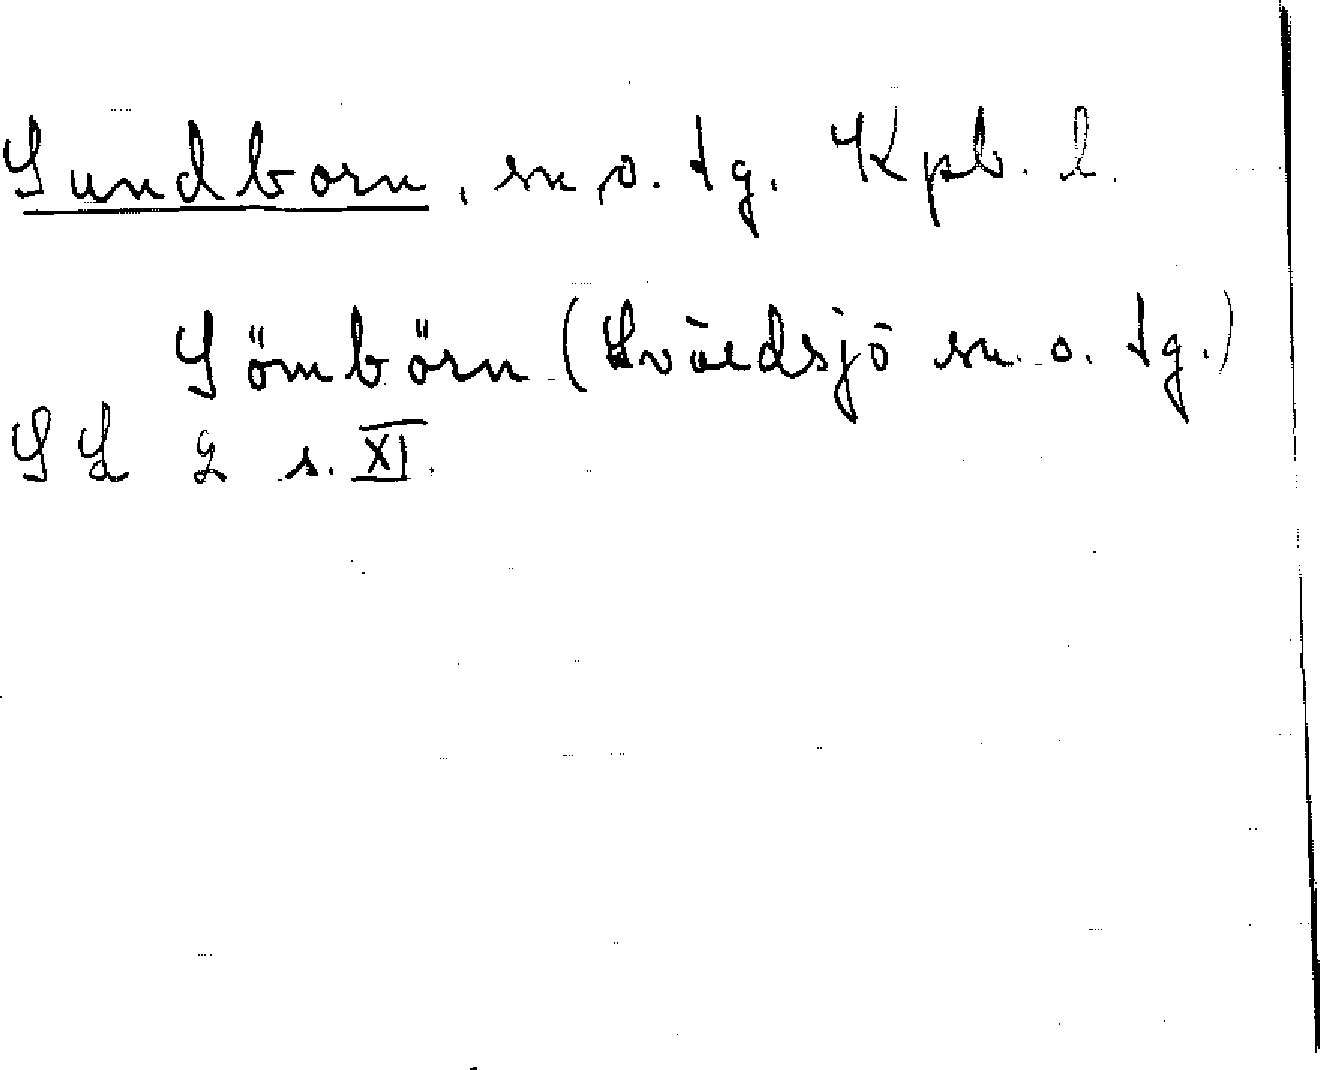 Sundborn, sn o. tg. Kpb. l.
Sömbörn (Svärdsjö sn. o. tg.)
SL 2 s. XI.